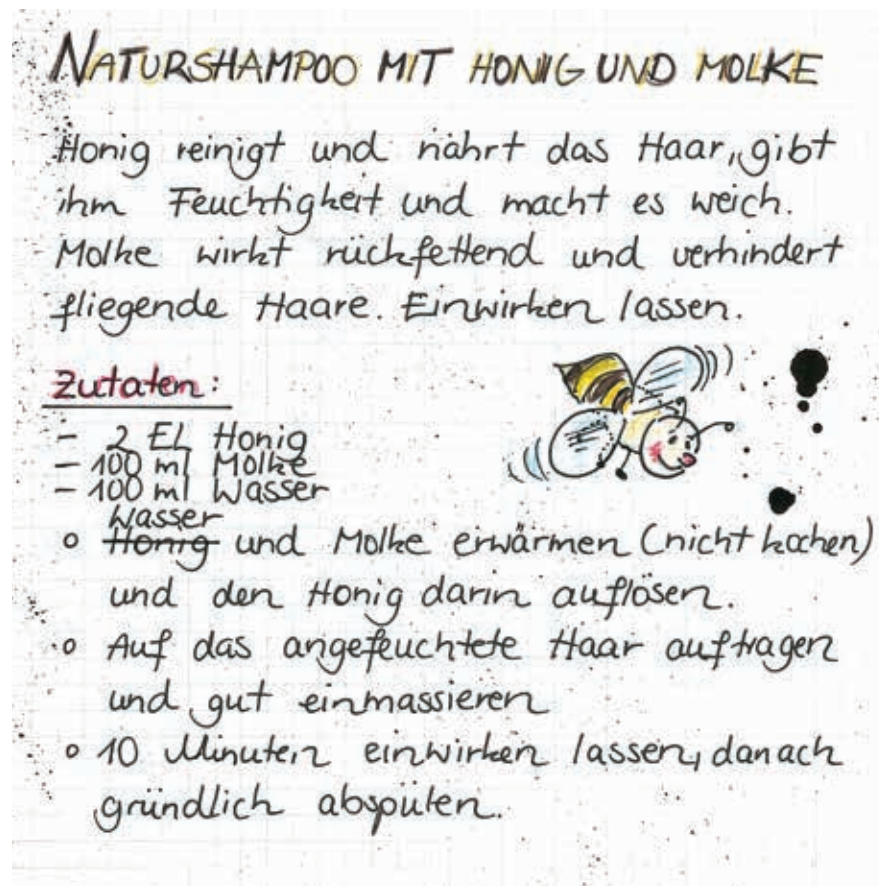 NATURSHAMPOO MIT HONIG UND MOLKE
Honig reinigt und nährt das Haar, gibt
ihm Feuchtigkeit und macht es weich.
Molke wirkt rückfettend und verhindert
fliegende Haare. Einwirken lassen.
Zutaten:
- 2 EL Honig
- 100 ml Molke
- 100 ml Wasser
Wasser
o Honig und Molke erwärmen (nicht kochen)
und den Honig darin auflösen.
o Auf das angefeuchtete Haar auftragen
und gut einmassieren
o 10 Minuten einwirken lassen, danach
gründlich abspülen.